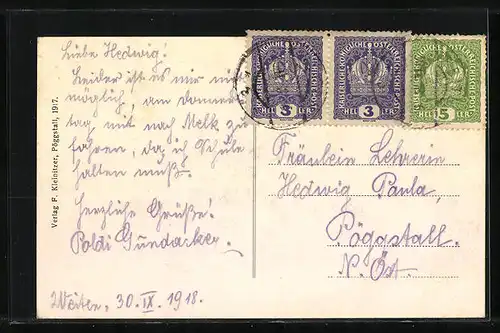 Liebe Hedwig!
Leider ist es mir nicht
möglich, am Donners-
tag mit nach Melk zu
fahren, da ich Schule
halten muß.
Herzliche Grüße!
Poldi Gundacker.
Weiten, 30. IX. 1918.
Verlag F. Kleinitzer, Pöggstall, 1917.
KAISERLICHE KÖNIGLICHE ÖSTERREICHISCHE POST
HELLER 3 HELLER
KAISERLICHE KÖNIGLICHE ÖSTERREICHISCHE POST
HELLER 3 HELLER
KAISERLICHE KÖNIGLICHE ÖSTERREICHISCHE POST
HELLER 5 HELLER
Fräulein Lehrerin
Hedwig Paula,
Pöggstall.
N. Öst.